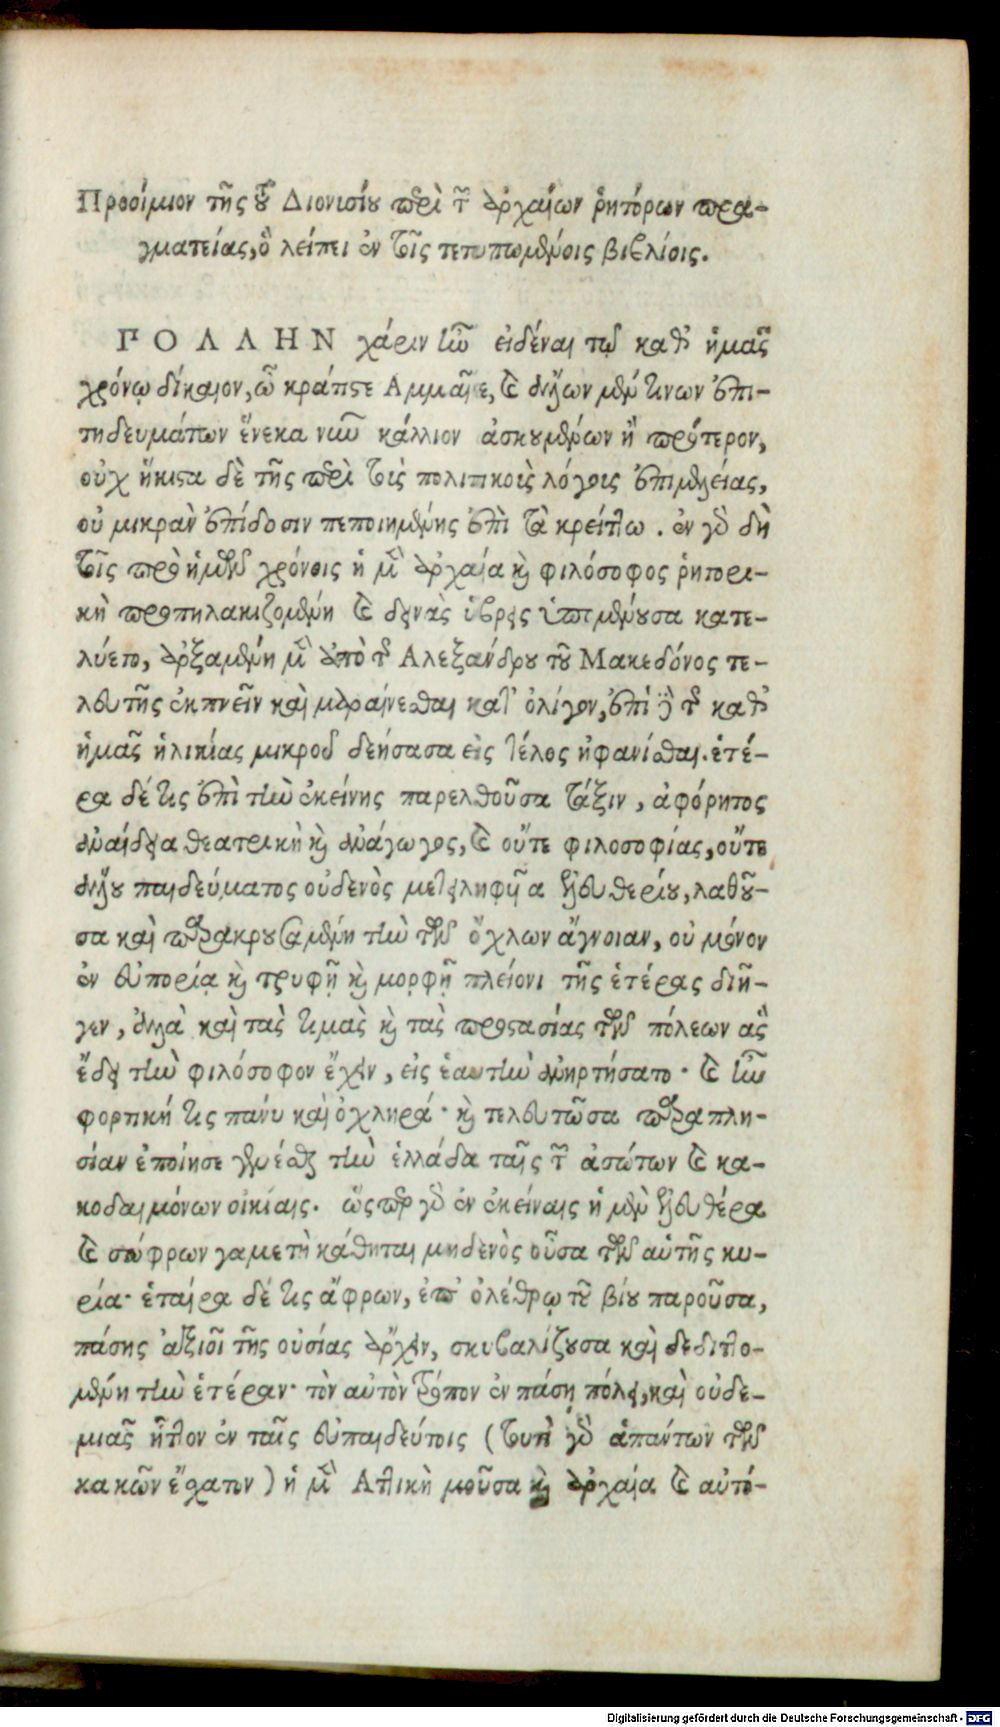 Προοίμιον τῆς τοῦ Διονισίου περὶ τῶν ἀρχαίων ῥητόρων πρα-
γματείας, ὃ λείπει ἐν τοῖς τετυπωμένοις βιβλίοις.
ΠΟΛΛΗΝ χάριν ἦν εἰδέναι τῷ καθ' ἡμᾶς
χρόνῳ δίκαιον, ὦ κράτιστε Αμμαῖε, καὶ ἄλλων μέν τινων ἐπι-
τηδευμάτων ἕνεκα νῦν κάλλιον ἀσκουμένων ἢ πρότερον,
οὐχ ἥκιστα δὲ τῆς περὶ τοὺς πολιτικοὺς λόγους ἐπιμελείας,
οὐ μικρὰν ἐπίδοσιν πεποιημένης ἐπὶ τὰ κρείττω. ἐν γὰρ δὴ
τοῖς πρὸ ἡμῶν χρόνοις ἡ μὲν ἀρχαία καὶ φιλόσοφος ῥητορι-
κὴ προπηλακιζομένη καὶ δεινὰς ὕβρεις ὑπομένουσα κατε-
λύετο, ἀρξαμένη μὲν ἀπὸ τῆς Αλεξάνδρου τοῦ Μακεδόνος τε-
λευτῆς ἐκπνεῖν καὶ μαραίνεσθαι κατ' ὀλίγον, ἐπὶ δὲ τῆς καθ'
ἡμᾶς ἡλικίας μικροῦ δεήσασα εἰς τέλος ἠφανίσθαι. ἑτέ-
ρα δέ τις ἐπὶ τὴν ἐκείνης παρελθοῦσα τάξιν, ἀφόρητος
ἀναίδεια θεατρικὴ καὶ ἀνάγωγος, καὶ οὔτε φιλοσοφίας, οὔτε
ἄλλου παιδεύματος οὐδενὸς μετειληφυῖα ἐλευθερίου, λαθοῦ-
σα καὶ παρακρουσαμένη τὴν τῶν ὄχλων ἄγνοιαν, οὐ μόνον
ἐν εὐπορίᾳ καὶ τρυφῇ καὶ μορφῇ πλείονι τῆς ἑτέρας διῆ-
γεν, ἀλλὰ καὶ τὰς τιμὰς καὶ τὰς προστασίας τῶν πόλεων ἃς
ἔδει τὴν φιλόσοφον ἔχειν, εἰς ἑαυτὴν ἀνηρτήσατο· καὶ ἦν
φορτική τις πάνυ καὶ ὀχληρά· καὶ τελευτῶσα παραπλη-
σίαν ἐποίησε γενέσθαι τὴν ἑλλάδα ταῖς τῶν ἀσώτων καὶ κα-
κοδαιμόνων οἰκίαις. ὥσπερ γὰρ ἐν ἐκείναις ἡ μὲν ἐλευθέρα
καὶ σώφρων γαμετὴ κάθηται μηδενὸς οὖσα τῶν αὑτῆς κυ-
ρία· ἑταίρα δέ τις ἄφρων, ἐπ' ὀλέθρῳ τοῦ βίου παροῦσα,
πάσης ἀξιοῖ τῆς οὐσίας ἄρχειν, σκυβαλίζουσα καὶ δεδιττο-
μένη τὴν ἑτέραν· τὸν αὐτὸν τρόπον ἐν πάσῃ πόλει, καὶ οὐδε-
μιᾶς ἧττον ἐν ταῖς εὐπαιδεύτοις (τουτὶ γὰρ ἁπάντων τῶν
κακῶν ἔσχατον) ἡ μὲν Αττικὴ μοῦσα καὶ ἀρχαία καὶ αὐτό-
Digitalisierung gefördert durch die Deutsche Forschungsgemeinschaft - DFG